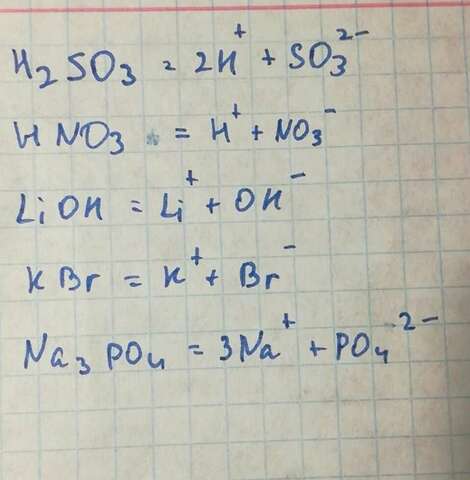 H₂SO₃ = 2H⁺ + SO₃²⁻
HNO₃ = H⁺ + NO₃⁻
LiOH = Li⁺ + OH⁻
KBr = K⁺ + Br⁻
Na₃PO₄ = 3Na⁺ + PO₄²⁻